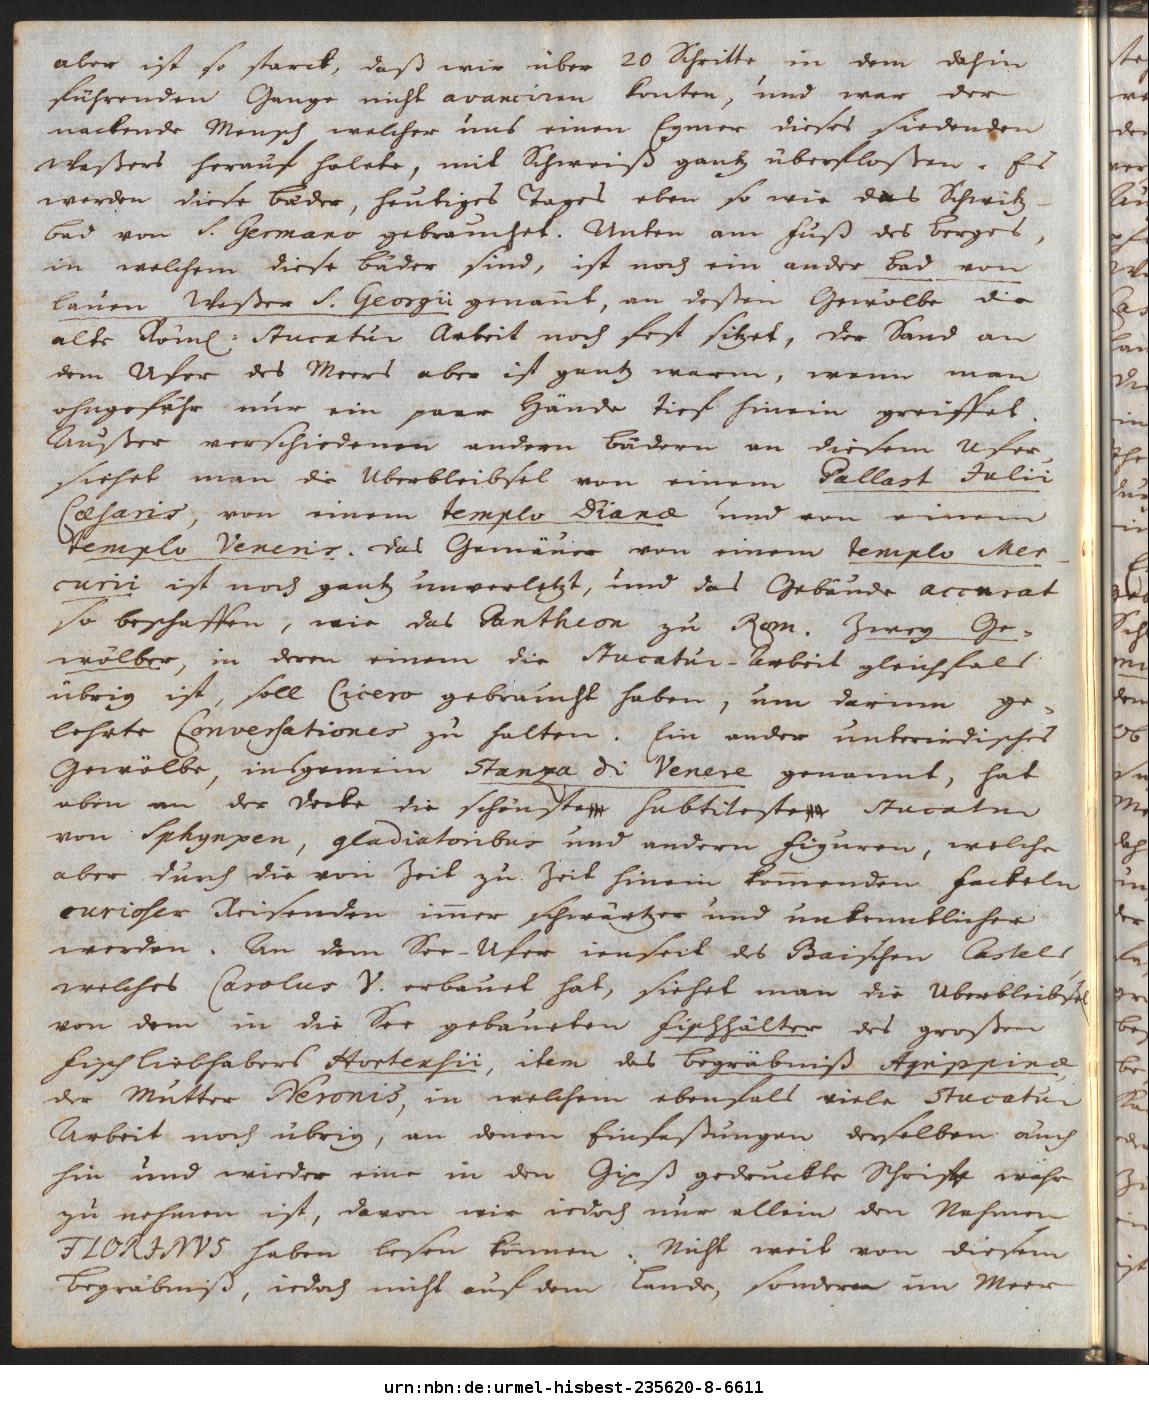 aber ist so starck, daß wir über 20 Schritte in dem dahin
führenden Gange nicht avanciren konten, und war der
nackende Mensch welcher uns einen Eymer dieses siedenden
Waßers herauf holete, mit Schweiß gantz überfloßen. Es
werden diese bäder, heutiges Tages eben so wie das Schwitz-
bad von S. Germano gebrauchet. Unten am Fuß des berges,
in welchem diese bäder sind, ist noch ein ander bad von
lauen Waßer S. Georgii genannt, an deßen Gewölbe die
alte Röml: Stucatur Arbeit noch fest sitzet, der Sand an
dem Ufer des Meers aber ist gantz warm, wenn man
ohngefähr nur ein paar Hände tief hinein greiffet.
Außer verschiedenen andern bädern an diesem Ufer,
siehet man die Uberbleibsel von einem Pallast Julii
Cæsaris, von einem templo Dianæ und von einem
templo Veneris. das Gemäuer von einem templo Mer-
curii ist noch gantz unverletzt, und das Gebäude accurat
so beschaffen, wie das Pantheon zu Rom. Zwey Ge-
wölber, in deren einem die Stucatur-Arbeit gleichfals
übrig ist, soll Cicero gebraucht haben, um darinn ge-
lehrte Conversationes zu halten. Ein ander unterirdisches
Gewölbe, insgemein Stanza di Venere genannt, hat
oben an der Decke die schönste subtileste Stucatur
von Sphynxen, gladiatoribus und andern Figuren, welche
aber durch die von Zeit zu Zeit hinein kommenden Fackeln
curioser Reisenden immer schwärtzer und unkenntlicher
werden. An dem See-Ufer ienseit des Baischen Castels
welches Carolus V. erbauet hat, siehet man die Uberbleibsel
von dem in die See gebaueten Fischhälter des großen
Fischliebhabers Hortensii, item das begräbniß Agrippinæ,
der Mutter Neronis, in welchem ebenfals viele Stucatur
Arbeit noch übrig, an denen Einfaßungen derselben auch
hin und wieder eine in den Gipß gedruckte Schrift wahr
zu nehmen ist, davon wir iedoch nur allein den Nahmen
FLORINVS haben lesen können. Nicht weit von diesem
begräbniß, iedoch nicht auf dem Lande, sondern im Meer
urn:nbn:de:urmel-hisbest-235620-8-6611